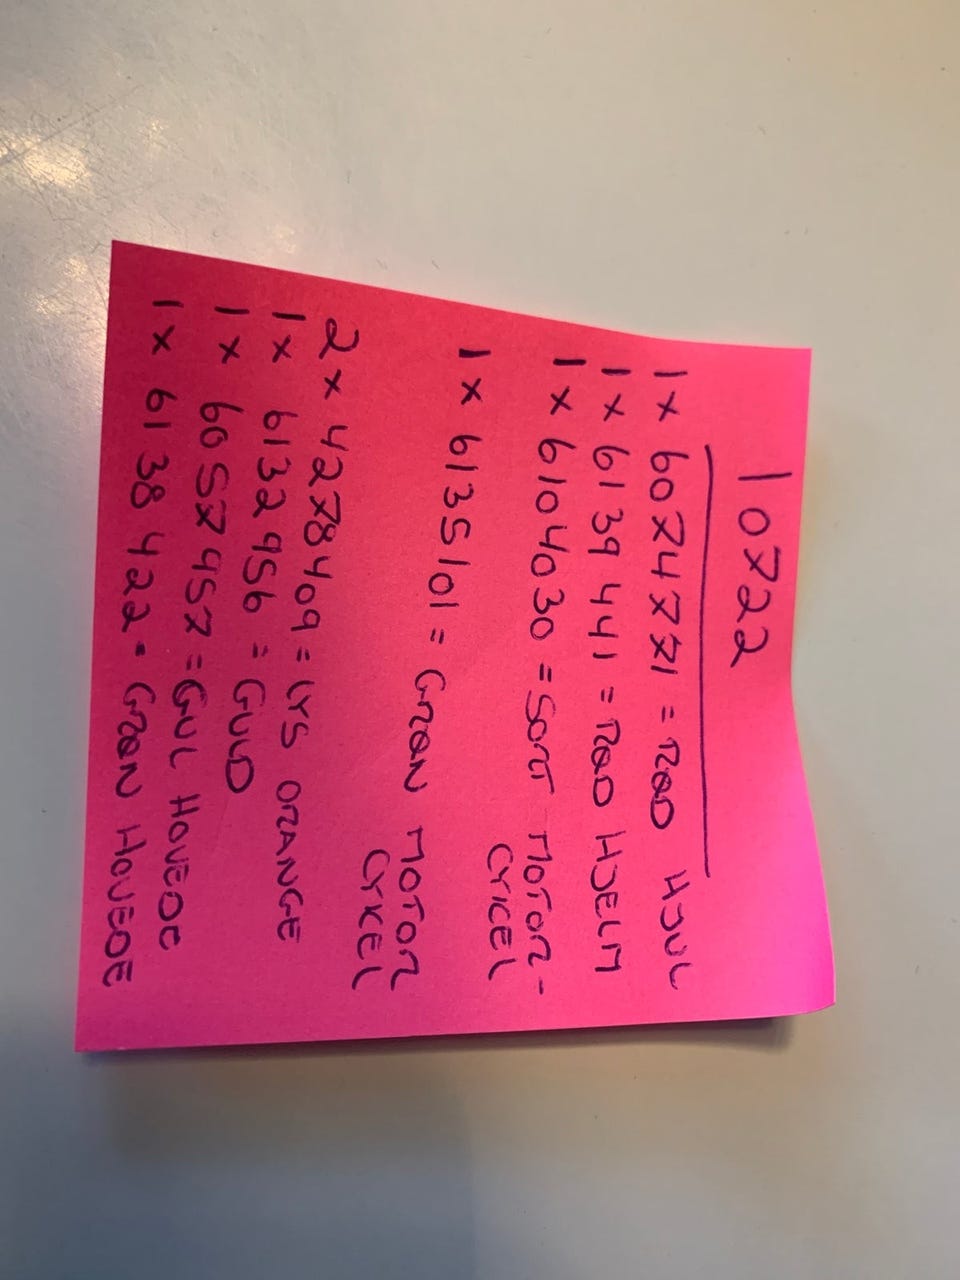 10722
1x 6074771 = RØD HJUL
1x 6139441 = RØD HJELM
1x 6104030 = SORT MOTOR-
CYKEL
1x 6135101 = GRØN MOTOR
CYKEL
2x 4278409 = LYS ORANGE
1x 6132956 = GULD
1x 6057957 = GUL HOVEDE
1x 6138422 = GRØN HOVEDE